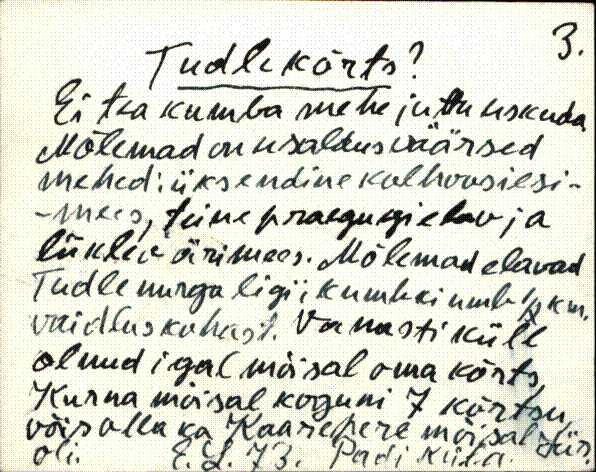 3.
Tudle kõrts?
Ei tea kumba mehe juttu uskuda
Mõlemad on usaldusväärsed
mehed: üks endine kolhoosiesi-
-mees, teine praegugi elav ja
liiklev ärimees. Mõlemad elavad
Tudle nurga ligi; kumbki umb. 1/2 km.
vaidluskohast. Vanasti küll
olnud igal mõisal oma kõrts,
Kurna mõisal koguni 7 kõrtsu,
võis olla ka Kaarepere mõisal
oli. E.L. 73. Padi küla.